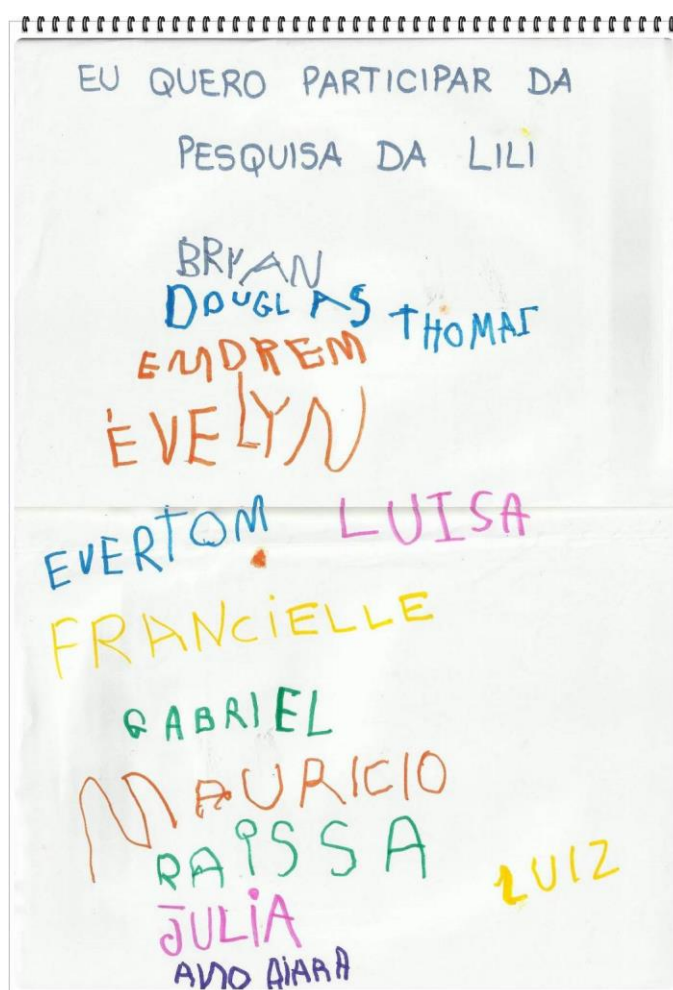 EU QUERO PARTICIPAR DA
PESQUISA DA LILI
BRYAN
DOUGLAS THOMAS
EMDREM
ÉVELYN
EVERTOM LUISA
FRANCiELLE
GABRIEL
MAURICIO
RAISSA
LUIZ
JULiA